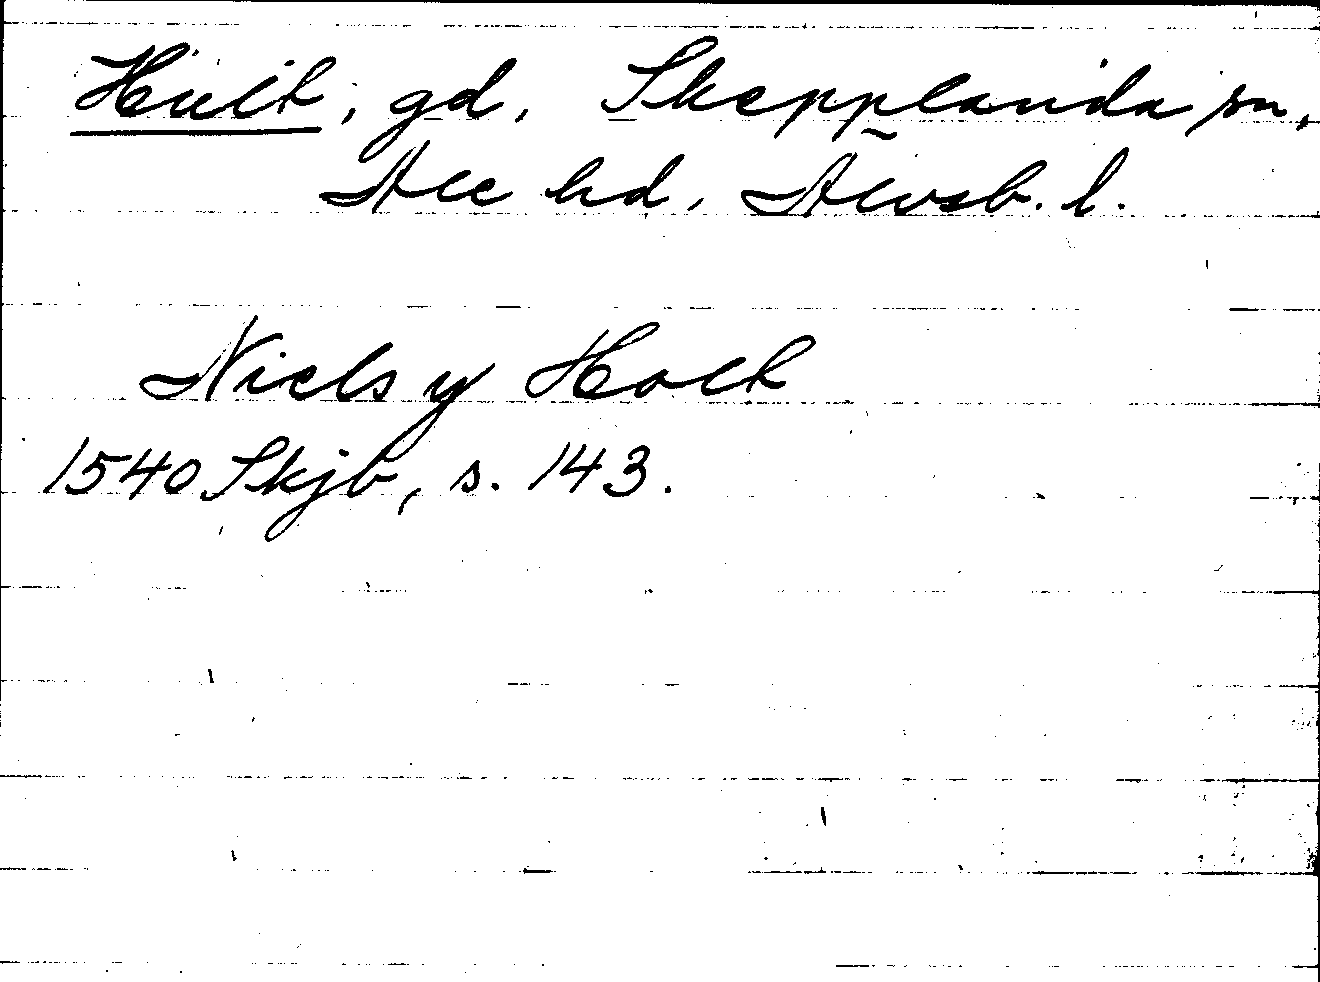 Hult, gd, Skepplanda sn,
Ale hd, Älvsb. l.
Niels y Holt
1540 Skjb, s. 143.